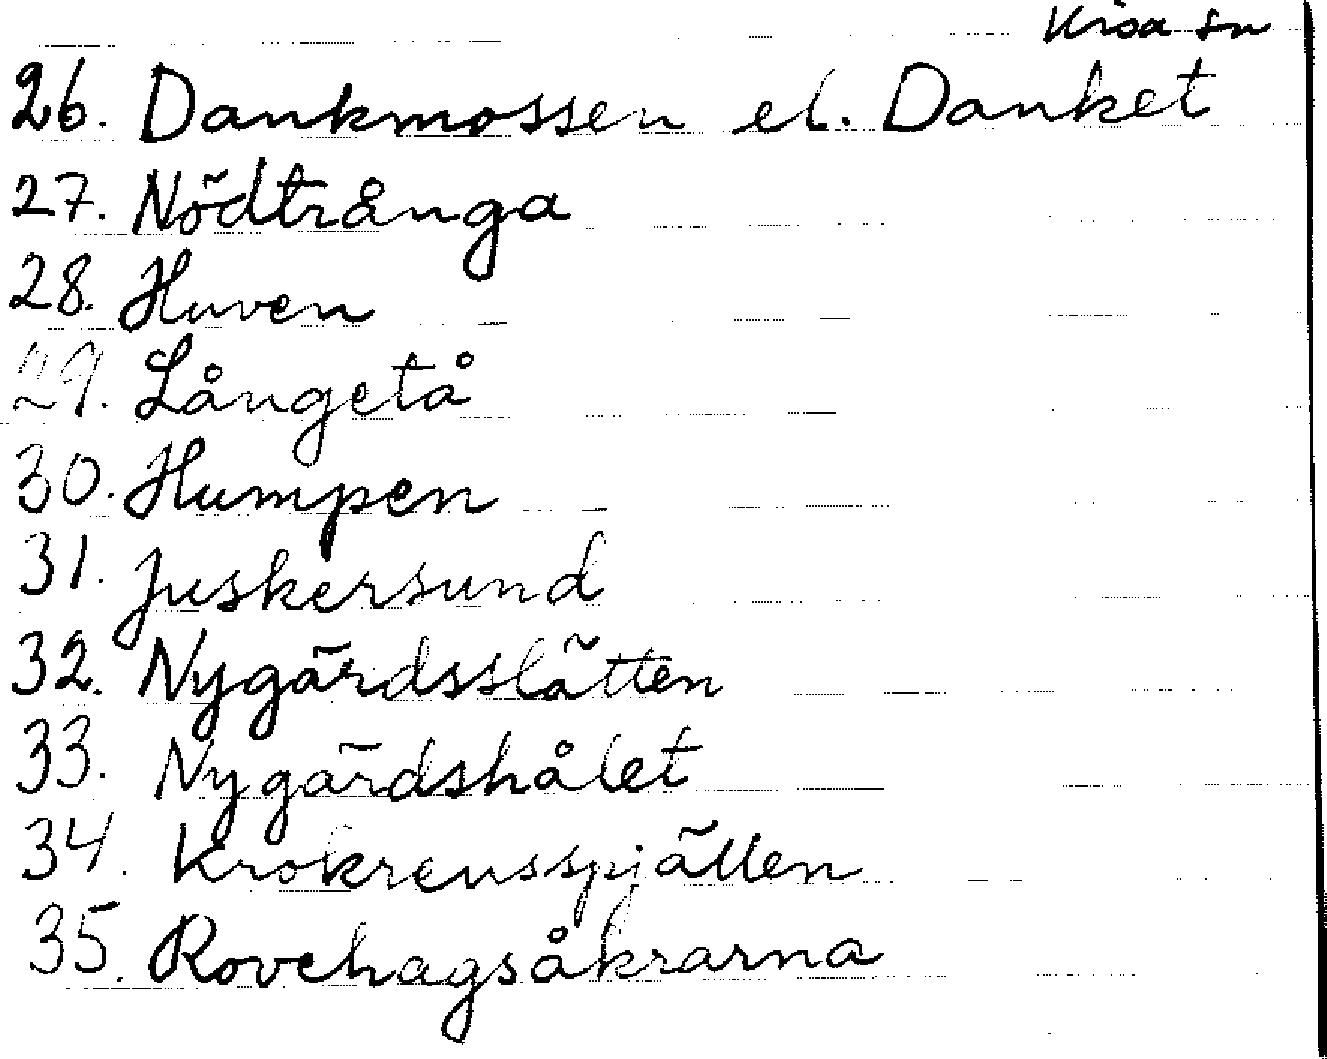 Kisa sn
26. Dankmossen el. Danket
27. Nödtrånga
28. Huven
29. Långetå
30. Humpen
31. Juskersund
32. Nygärdsslätten
33. Nygärdshålet
34. Krokrensspjällen
35. Rovehagsåkrarna